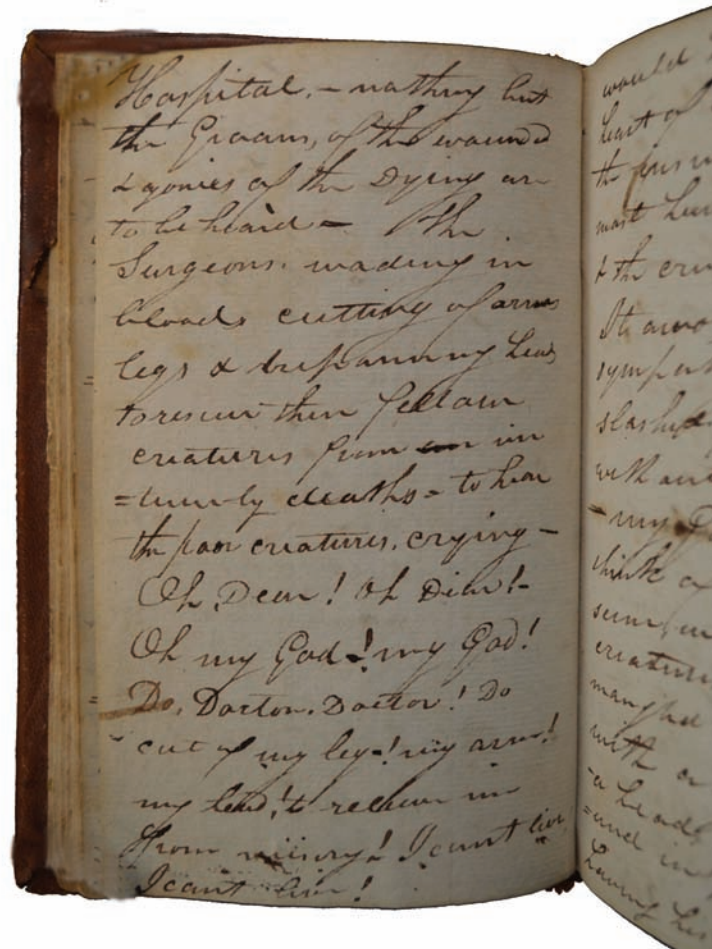 Hospital, - nothing but
the Groans, of the wounded
& agonies of the Dying are
to be heard - The
Surgeons. wading in
bloods cutting of arms
legs & trepanning heads
to rescue their fellow
creatures from an un
=timely deaths = to hear
the poor creatures. crying -
Oh, Dear! Oh Dear!-
Oh my God-! my God!
Do, Doctor. Doctor! Do
cut of my leg-! my arm!
my head! to relieve me
from misery! I cant live
I cant live!
would
heart of
the
most
& the
It
slashed
with
- my
think of
seem,
creatures
mangled
with
a head
=and in
having